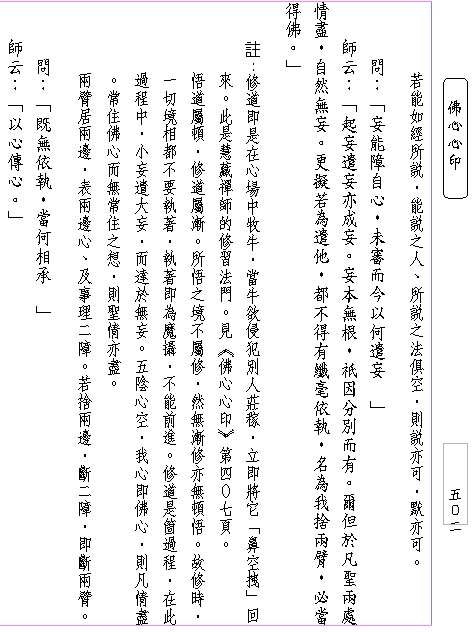 佛心心印
五〇二
若能如經所說，能說之人、所說之法俱空，則說亦可，默亦可。
問：「妄能障自心，未審而今以何遣妄　」
師云：「起妄遣妄亦成妄。妄本無根，祇因分別而有。爾但於凡聖兩處
情盡，自然無妄。更擬若為遣他，都不得有纖毫依執，名為我捨兩臂，必當
得佛。」
註：修道即是在心場中牧牛，當牛欲侵犯別人莊稼，立即將它「鼻空拽」回
來。此是慧藏禪師的修習法門。見《佛心心印》第四０七頁。
悟道屬頓，修道屬漸。所悟之境不屬修，然無漸修亦無頓悟。故修時，
一切境相都不要執著，執著即為魔攝，不能前進。修道是箇過程，在此
過程中，小妄遣大妄，而達於無妄。五陰心空，我心即佛心，則凡情盡
。常住佛心而無常住之想，則聖情亦盡。
兩臂居兩邊，表兩邊心、及事理二障。若捨兩邊，斷二障，即斷兩臂。
問：「既無依執，當何相承　」
師云：「以心傳心。」